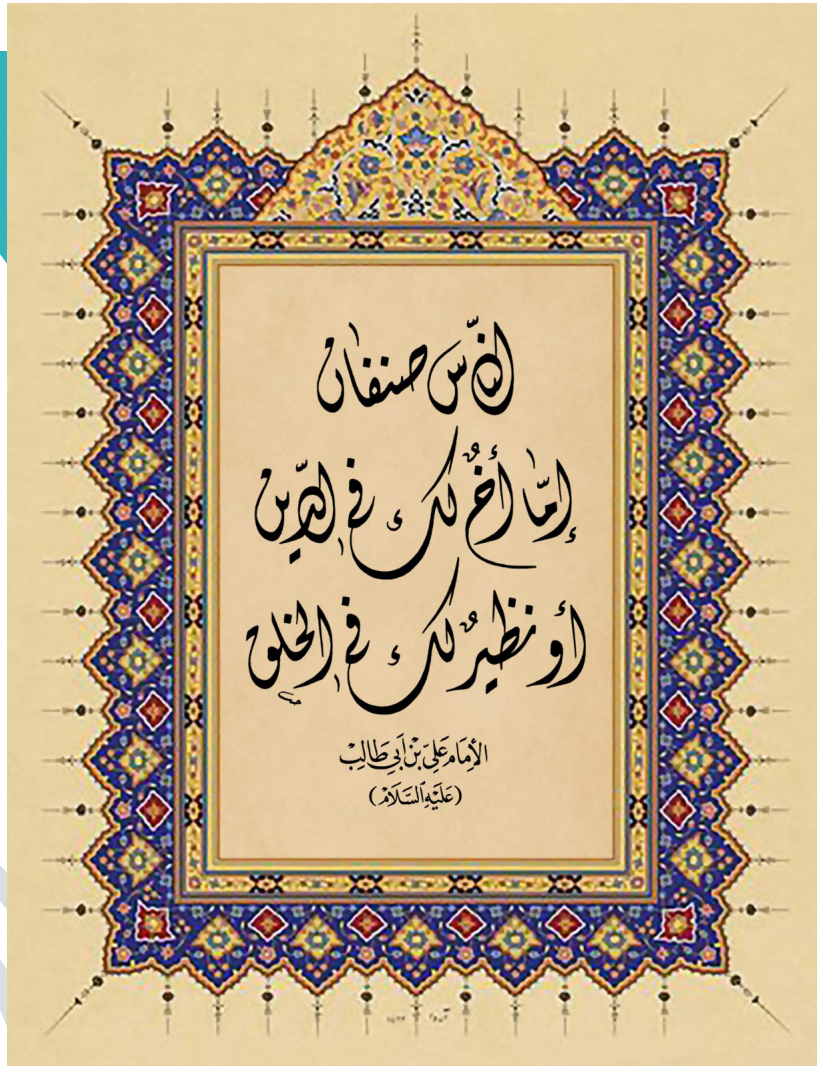 الناّس صنفان
إمّا أخٌ لك في الدّين
أو نظيرٌ لك في الخلق
الأِمَام عَليّ بْن أَبي طَالِبْ
(عَلَيْهِ ٱلسَّلَامْ)